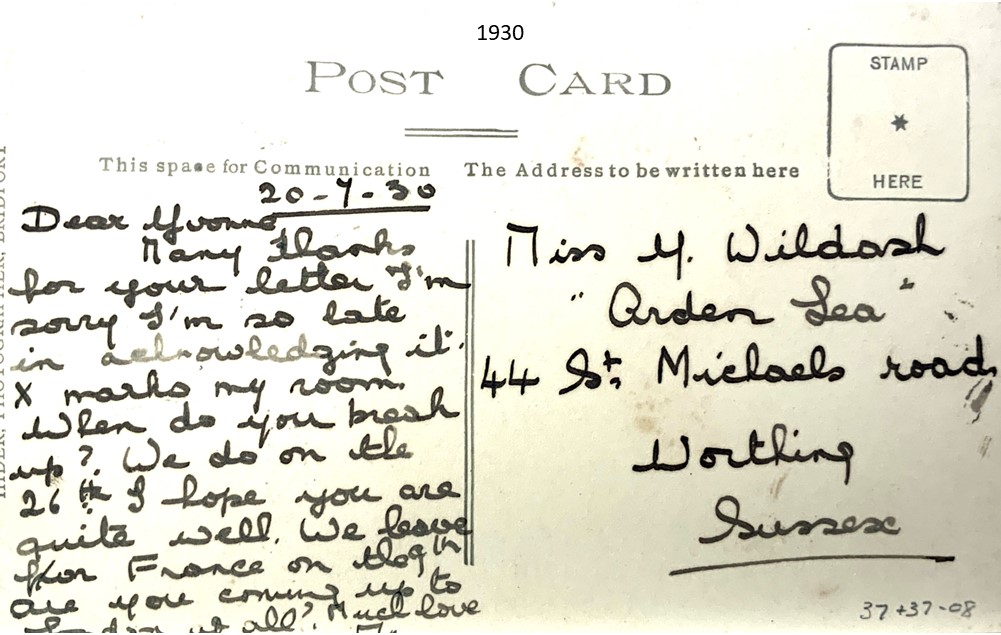 1930
POST CARD
STAMP
HERE
This space for Communication
The Address to be written here
20-7-30
Dear Yvonne
Many thanks
for your letter I'm
sorry I'm so late
in acknowledging it.
X marks my room.
When do you break
up? We do on the
26th I hope you are
quite well. We leave
for France on the 9th
are you coming up to
London at all? Much love
Miss Y. Wildash
"Arden Lea"
44 St. Michaels road,
Worthing
Sussex
37+37-08
PHOTOGRAPHER, BRIDPORT